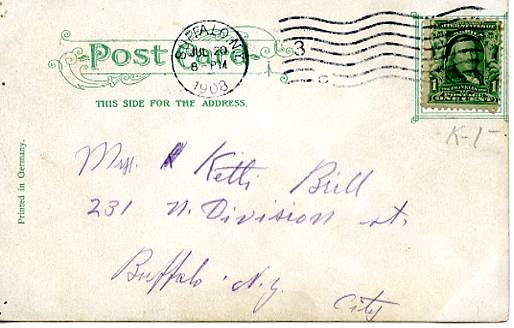 Post Card
BUFFALO, N.Y.
JUL 20
8-PM
1908
3
C
1
POSTAGE
ONE CENT
THIS SIDE FOR THE ADDRESS.
K-1-
Printed in Germany.
Mrs. Ketti Brill
231 N. Division st.
Buffalo. N.y.
City